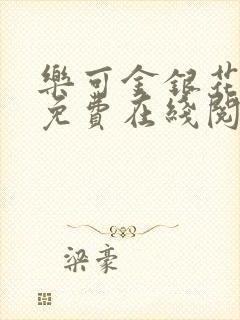 樂可金銀花
免費在綫閱
梁豪